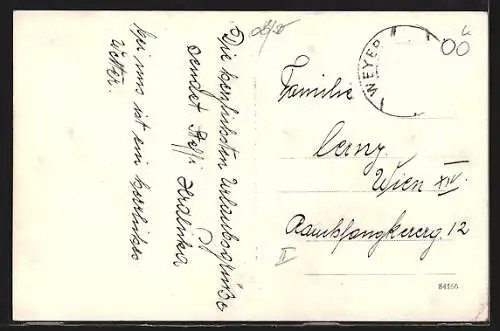 Die herzlichsten Urlaubsgrüße
sendet Steffi
Bei uns ist ein herrliches
Wetter.
WEYER
Familie
Cerny
Wien XIV.
Rauchfangkererg. 12
II
84166